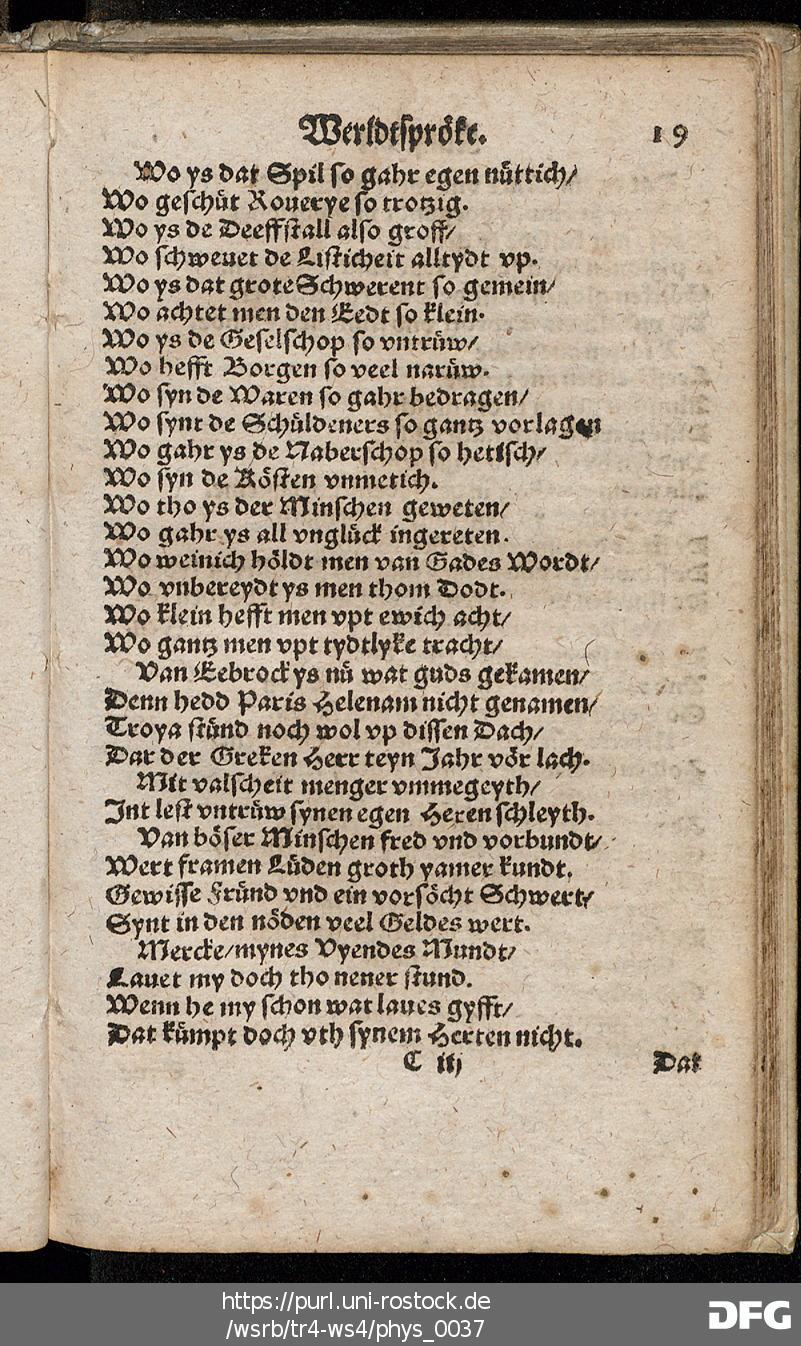 Werldtspröke. 19
Wo ys dat Spil so gahr egen nüttich/
Wo geschüt Rouerye so trotzig.
Wo ys de Deeffstall also groff/
Wo schweuet de Listicheit alltydt vp.
Wo ys dat grote Schwerent so gemein/
Wo achtet men den Eedt so klein.
Wo ys de Geselschop so vntrüw/
Wo hefft Borgen so veel narüw.
Wo syn de Waren so gahr bedragen/
Wo synt de Schüldeners so gantz vorlagen
Wo gahr ys de Naberschop so hetisch/
Wo syn de Kösten vnmetich.
Wo tho ys der Minschen geweten/
Wo gahr ys all vnglück ingereten.
Wo weinich höldt men van Gades Wordt/
Wo vnbereydt ys men thom Dodt.
Wo klein hefft men vpt ewich acht/
Wo gantz men vpt tydtlyke tracht/
Van Eebrock ys nü wat guds gekamen/
Denn hedd Paris Helenam nicht genamen/
Troya stünd noch wol vp dissen Dach/
Dar der Greken Herr teyn Jahr vör lach.
Mit valscheit menger vmmegeyth/
Int lest vntrüw synen egen Heren schleyth.
Van böser Minschen fred vnd vorbundt/
Wert framen Lüden groth yamer kundt.
Gewisse Fründ vnd ein vorsöcht Schwert/
Synt in den nöden veel Geldes wert.
Mercke/mynes Vyendes Mundt/
Lauet my doch tho nener stund.
Wenn he my schon wat laues gyfft/
Dat kümpt doch vth synem Herten nicht.
C iij Dat
https://purl.uni-rostock.de
/wsrb/tr4-ws4/phys_0037
DFG